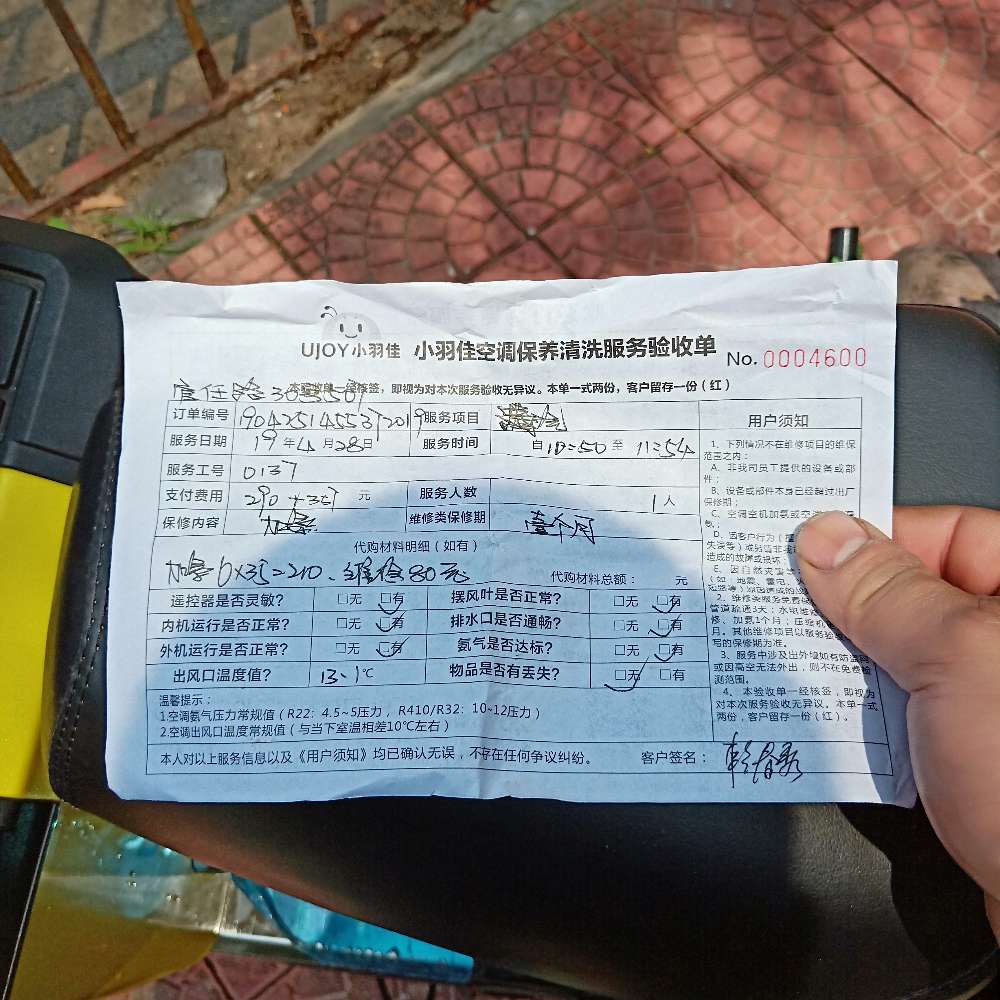 UJOY小羽佳 小羽佳空调保养清洗服务验收单 No. 0004600
一经核签，即视为对本次服务验收无异议。本单一式两份，客户留存一份（红）
订单编号 服务项目
服务日期 19年4月28日 服务时间 自10:50至11:54
服务工号 0137
支付费用 元 服务人数 1人
保修内容 维修类保修期 壹个月
代购材料明细（如有）
6×35=210、维修80元 代购材料总额： 元
遥控器是否灵敏？ 口无 口有 摆风叶是否正常？ 口无 口有
内机运行是否正常？ 口无 口有 排水口是否通畅？ 口无 口有
外机运行是否正常？ 口无 口有 氨气是否达标？ 口无 口有
出风口温度值？ 13.1℃ 物品是否有丢失？ 口无 口有
温馨提示：
1.空调氨气压力常规值（R22：4.5~5压力，R410/R32：10~12压力）
2.空调出风口温度常规值（与当下室温相差10℃左右）
本人对以上服务信息以及《用户须知》均已确认无误，不存在任何争议纠纷。 客户签名：
用户须知
1、下列情况不在维修项目的维保
范围之内：
A、非我司员工提供的设备或部
件；
B、设备或部件本身已经超过出厂
保修期；
C、空调空机加氨或空
D、因客户行为
造成的故障或损坏
E、因自然灾害
（如：地震、雷电、
2、维修类服务免费保
管道疏通3天；水电维
修、加氨1个月；压缩机
月。其他维修项目以服务验
写的保修期为准。
3、服务中涉及出外墙如有防盗网
或因高空无法外出，则不在免费检
测范围。
4、本验收单一经核签，即视为
对本次服务验收无异议。本单一式
两份，客户留存一份（红）。